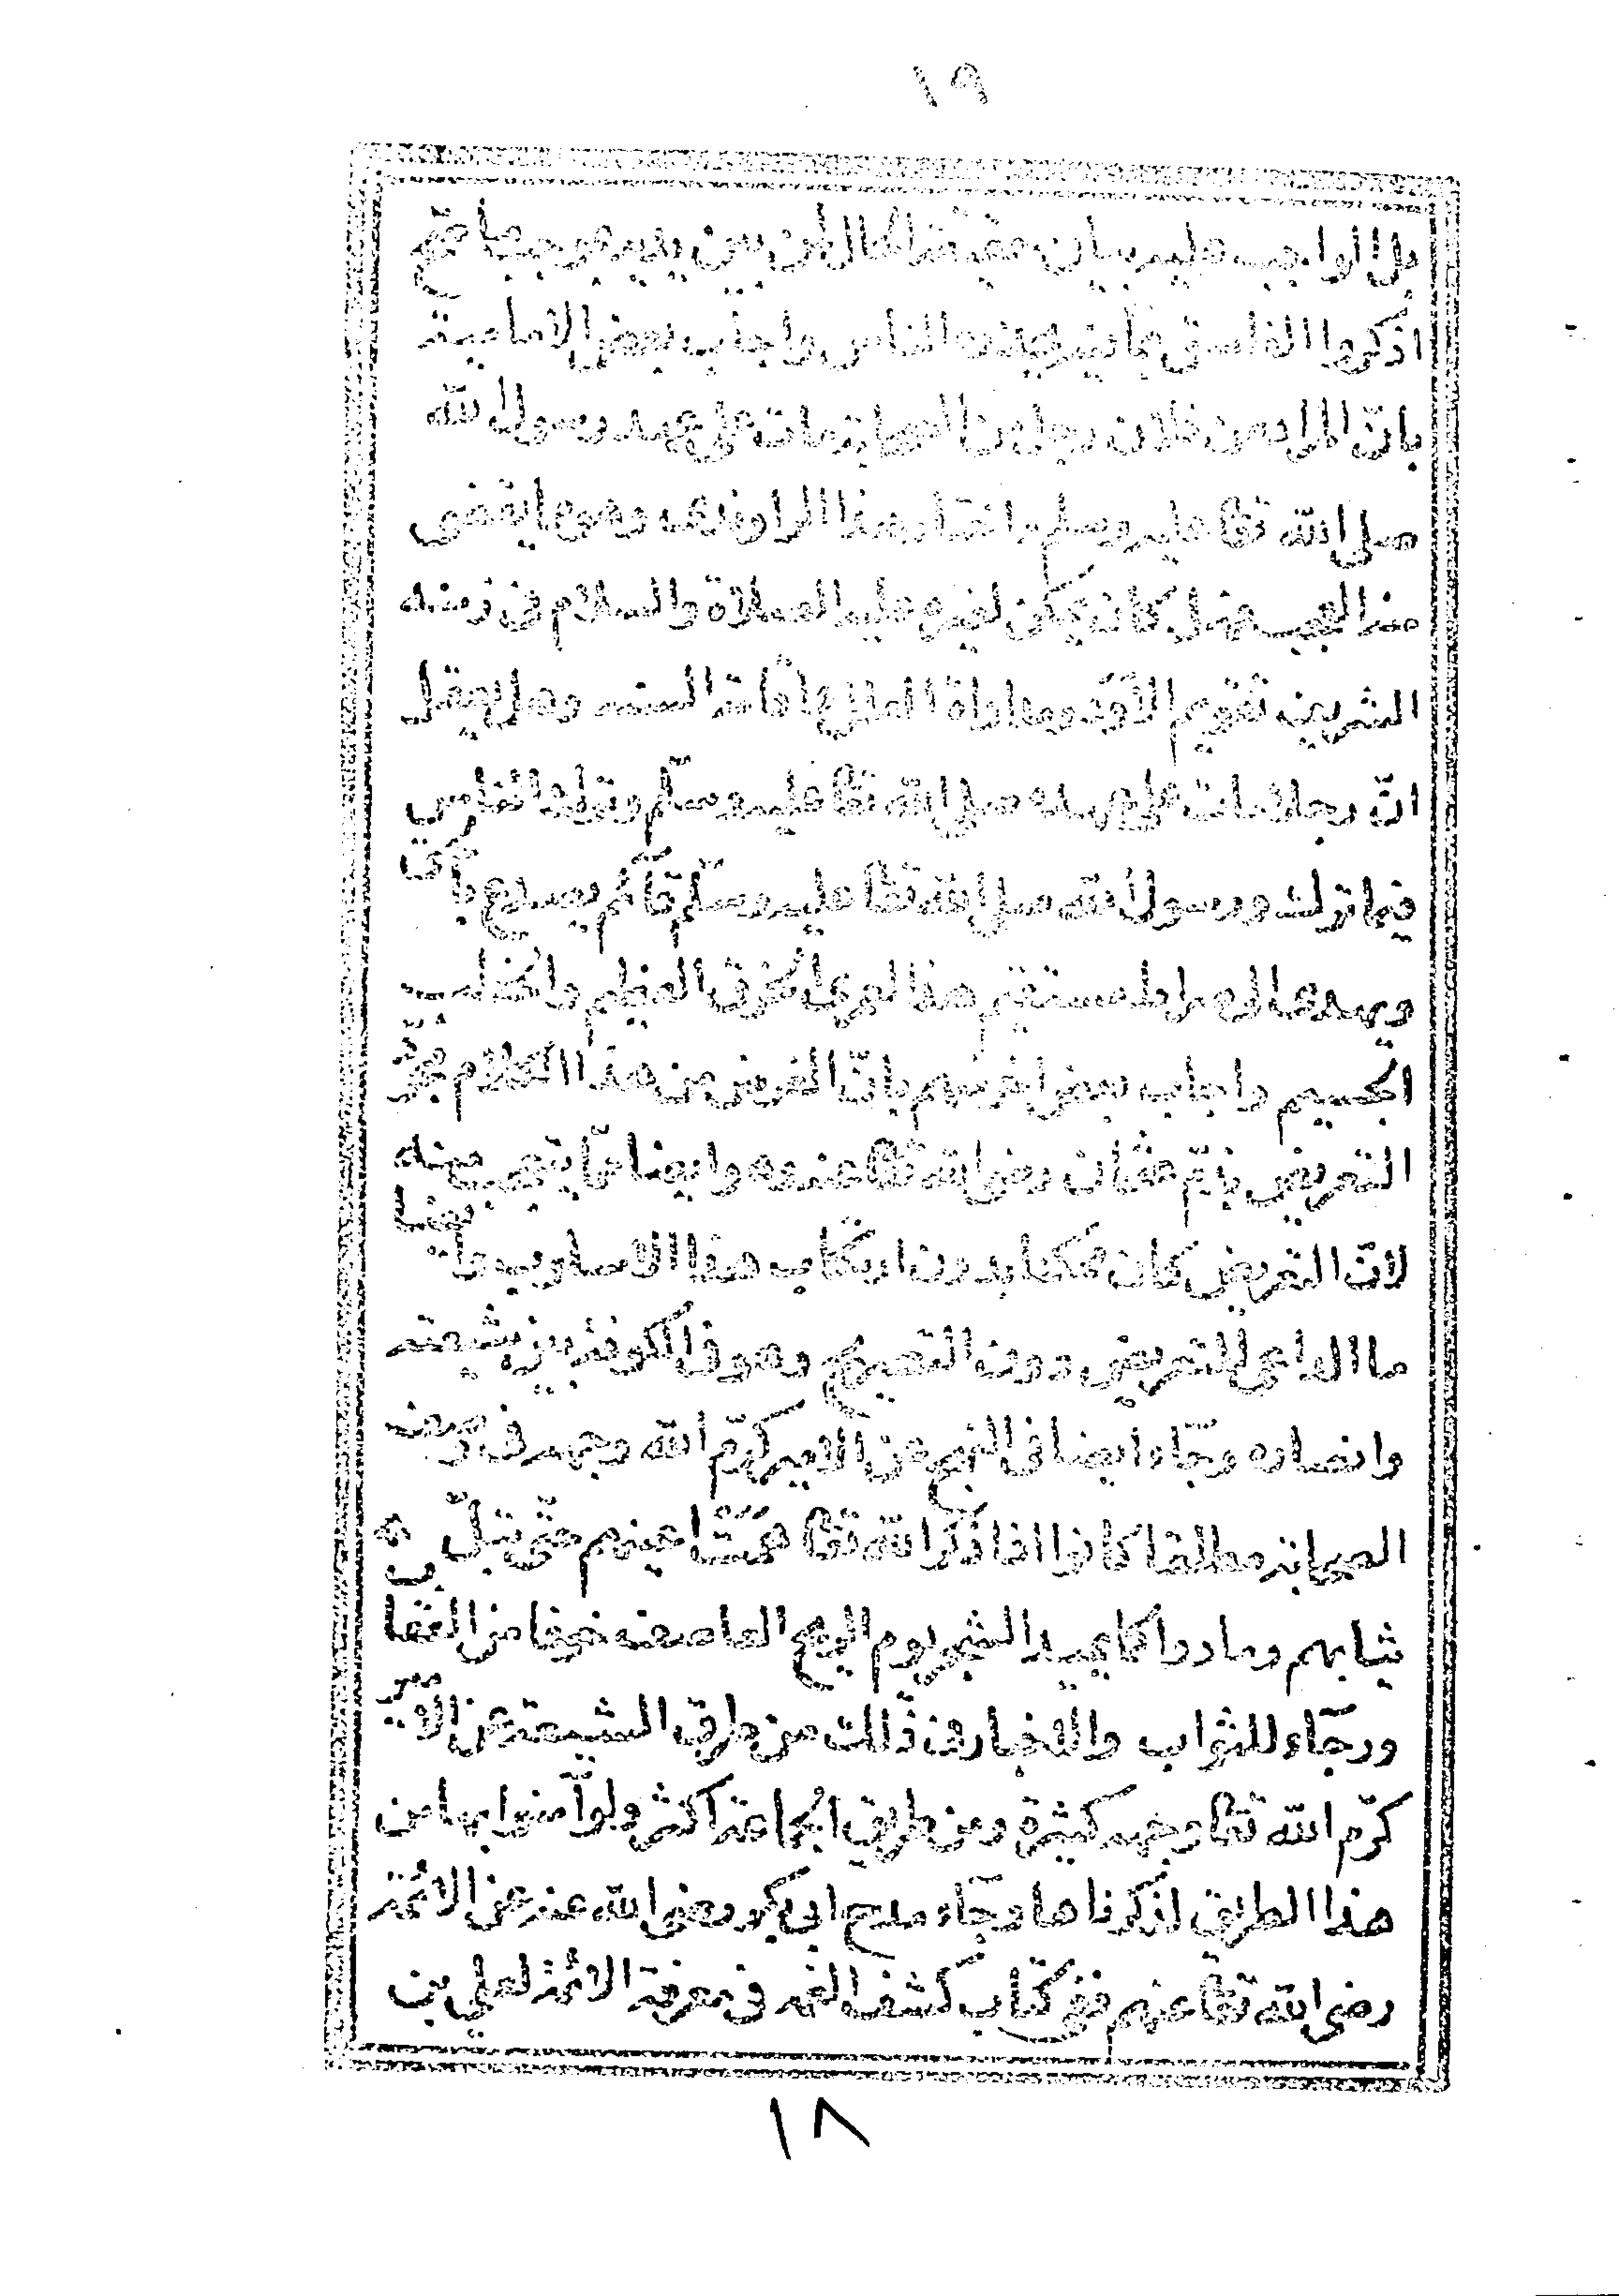 ١٩
بل الواجب عليه بيان حقيقة الحال لمن بين يديه بموجب الحديث الصحيح
اذكروا الفاسق بما فيه يحذره الناس واجاب بعض الامامية
بانّ المراد من فلان رجل من الصحابة مات على عهد رسول الله
صلى الله تعا عليه وسلم واختار هذا الراوندى وهو مما يقضى
منه العجب فهل كان يمكن لغيره عليه الصلاة والسلام فى زمنه
الشريف تقويم الاود ومداواة العلل واقامة السنه وهل يعقل
انّ رجلا مات على عهده صلى الله تعا عليه وسلّم وترك الناس
فيما ترك ورسول الله صلى الله تعا عليه وسلّم قآئم يصدع بالحق
ويهدى الى صراط مستقيم هذا لعمرى الخرق العظيم والخطب
الجسيم واجاب بعض اخر منهم بانّ الغرض من هذا الكلام مجرّد
التعريض بذمّ عثمان رضى الله تعا عنه وهو ايضا ممّا يتعجب منه
لانّ التعريض كان ممكنا بدون ارتكاب هذا الاسلوب وايضا
ما الداعى للتعريض دون التصريح وهو فى الكوفة بين شيعته
وانصاره وجآء ايضا فى النهج عن الامير كرّم الله وجهه فى وصف
الصحابة مطلقا كانوا اذا ذكر الله تعا همت اعينهم حتّى تبلّ
ثيابهم ومادوا كما يميد الشجر يوم الريح العاصف خوفا من العقاب
ورجآء للثواب والاخبار فى ذلك من طرق الشيعة عن الامير
كرّم الله تعا وجهه كثيرة ومن طريق الجماعة اكثر ولو آمنوا بما من
هذا الطريق لذكرناها وجآء مدح ابى بكر رضى الله عنه عن الائمة
رضى الله تعا عنهم ففى كتاب كشف الغمه فى معرفة الائمة لعلي بن
١٨